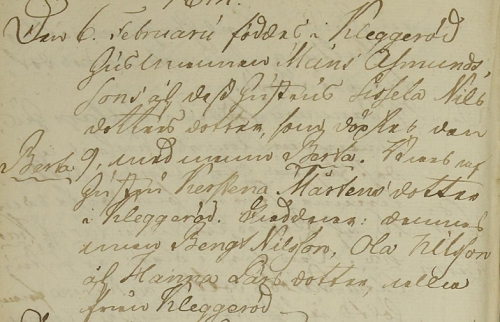 Den 6. Februarii föddes i Kleggeröd
Husmannen Måns Asmunds
sons af dess Hustrus Sissela Nils
dotters dotter, som döptes den
Berta 9, med namn Berta. Bars af
Hustru Kerstena Mårtens dotter
i Kleggeröd. Faddrar:
Bengt Nilsson, Ola
af Hanna Lars dotter, alla
från Kleggeröd